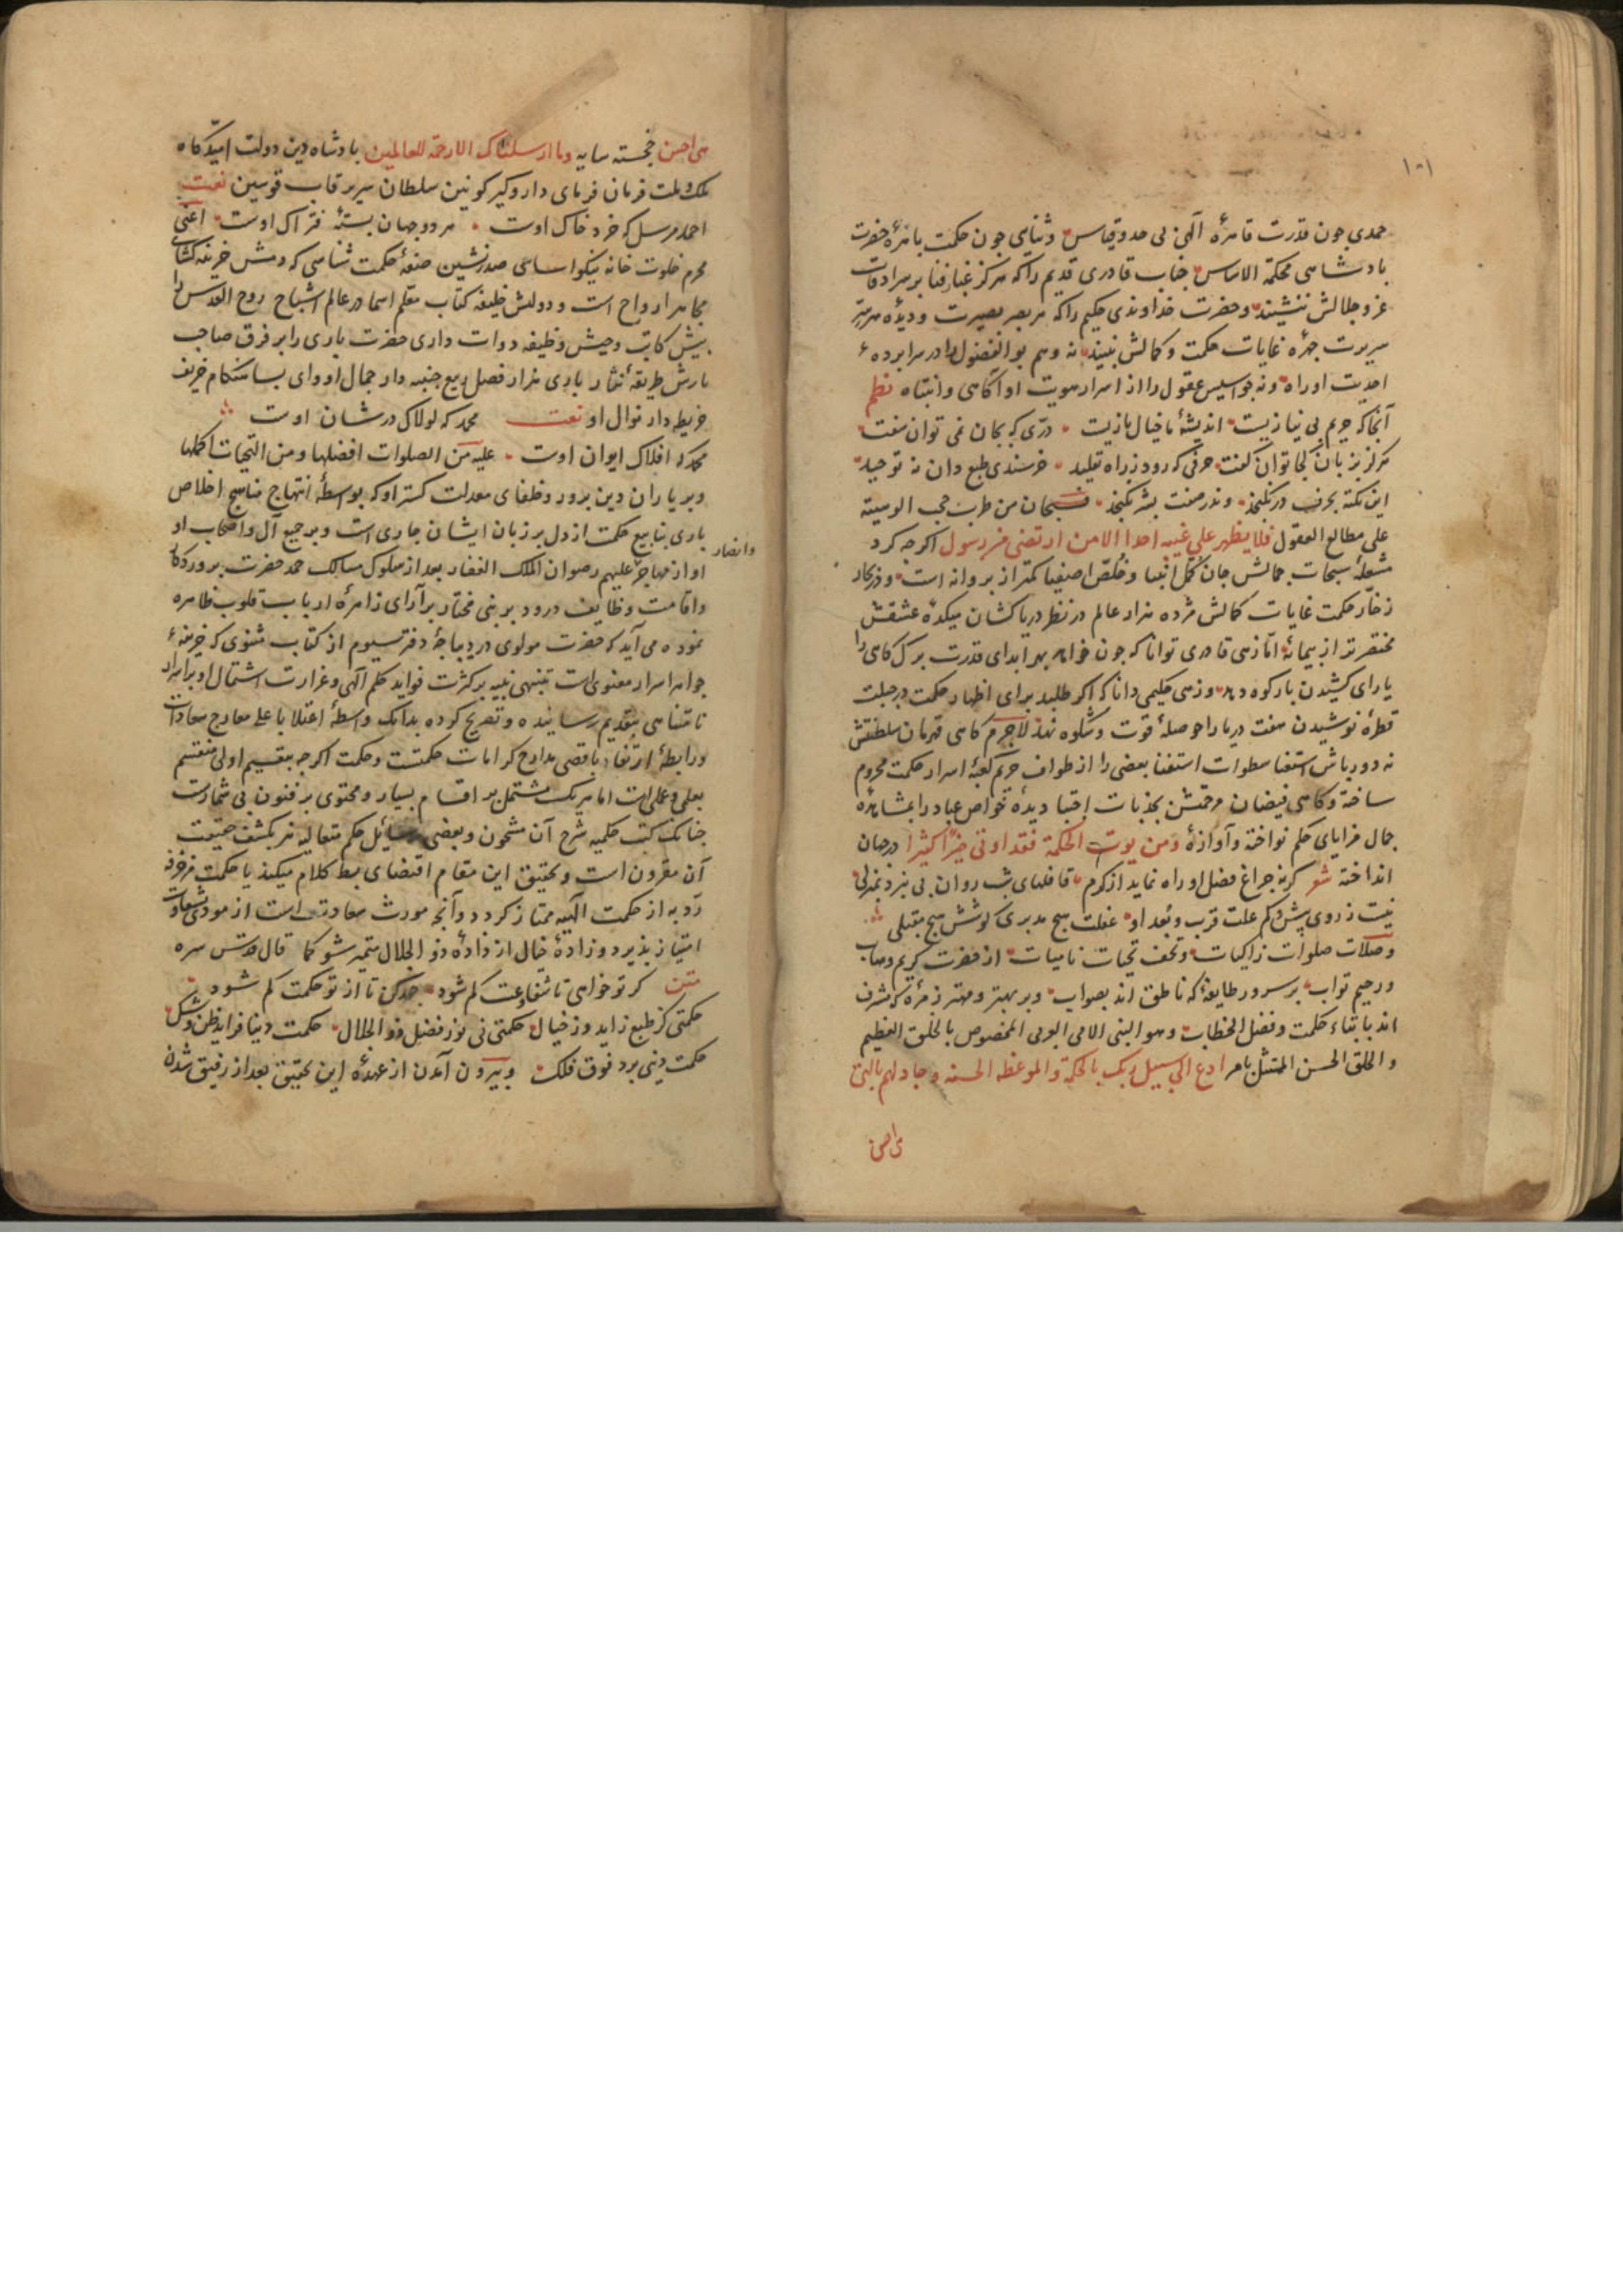 ١٠١
حمدی جون قدرت قاهرهٔ آلهی بی حد و قیاس و ثنایی جون حکمت باهرهٔ حضرت
بادشاهی محکمة الاساس جناب قادری قدیم را که هرکز غبار فنا بر سرادقات
عز و جلالش ننشیند و حضرت خداوندی حکیم را که هر بصر بصیرت و دیدهٔ
سریرت جهرهٔ غایات حکمت و کمالش نبیند نه وهم بو الفضول را در سرابردهء
احدیت او راه و نه جواسیس عقول را از اسرار هویت او آکاهی و انتباه نظم
آنجا که حریم بی نیازیست اندیشهٔ ما خیال بازیست درّی که بجان نمی توان سفت
هرکز بزبان کجا توان کفت حرفی که رود ز راه تقلید خرسندی طبع دان نه توحید
این نکته بحرف در نکنجد وندر صفت بشر نکنجد فسبحان من ضرب حجب الوهیته
علی مطالع العقول فلا یظهر علی غیبه احدا الا من ارتضی من رسول اکرجه کرد
مشعلهٔ سبحات جمالش جان کمّل انبیا و خلّص اصفیا کمتر از بروانه است و
زخّار حکمت غایات کمالش مژده هزار عالم در نظر دریا کشان میکدهٔ عشقش
مختصرتر از بیمانهٔ امّا زهی قادری توانا که جون خواهد بهر ابدای قدرت برک کاهی را
یارای کشیدن بار کوه دهد و زهی حکیمی دانا که اکر طلبد برای اظهار حکمت در جبلت
قطرهٔ نوشیدن هفت دریا را حوصلهٔ قوت و شکوه نهد لاجرم کاهی قهرمان سلطنتش
به دور باش استغنا سطوات استغنا بعضی را از طواف حریم کعبهٔ اسرار حکمت محروم
ساخته و کاهی فیضان مرحمتش بجذبات اجتبا دیدهٔ خواص عباد را بمشاهدهٔ
جمال مرایای حکم نواخته و آوازهٔ و من یوت الحکمة فقد اوتی خیرًا کثیرا در جهان
انداخته شعر کرنه جراغ فضل او راه نماید از کرم قافلهای شب روان بی نبرد بمنزلی
نیست ز روی بیش و کم علت قرب و بعد او غفلت هیج مدبری کوشش هیج مقبلی
و صلات صلوات زاکیات و تحف تحیات نامیات از حضرت کریم وهاب
و رحیم تواب بر سرور طایفهٔ که ناطق اند بصواب و بر بهتر و مهتر زمرهٔ که مشرف
اند بایتاء حکمت و فصل الخطاب و هو النبی الامی العربی المخصوص بالخلق العظیم
و الخلق الحسن الممتثل بامر ادع الی سبیل ربک بالحکمة و الموعظة الحسنة و جادلهم بالتی
هی احسن
هی احسن خجسته سایه و ما ارسلناک الا رحمة للعالمین بادشاه دین دولت امیدکاه
ملک و ملت فرمان فرمای دار و کیر کونین سلطان سریر قاب قوسین نعت
احمد مرسل که خرد خاک اوست هر دو جهان بستهٔ فتراک اوست اعنی
محرم خلوت خانه نیکو اساسی صدر نشین صفهٔ حکمت شناسی که دمش خزینه کشای
جواهر ارواح است و دولتش خلیفهٔ کتاب معلم اسما در عالم اشباح روح القدس را
بیش کاتب وحیش وظیفه دوات داری حضرت باری را بر فرق صاحب
بارش طریقهٔ نثار بادی هزار فصل ربیع جنیبه دار جمال او و ای بسا هنکام خریف
خریطه دار نوال او نعت محمد که لولاک در شان اوست
محمد که افلاک ایوان اوست علیه من الصلوات افضلها و من التحیات اکملها
و بر یاران دین برور و خلفای معدلت کستر او که بواسطهٔ انتهاج مناهج اخلاص
باری ینابیع حکمت از دل بر زبان ایشان جاری است و بر جمیع آل و اصحاب او
و انصار
او از مهاجر علیهم رضوان الملک الغفار بعد از سلوک مسالک حمد حضرت بروردکار
و اقامت وظایف درود بر نبی مختار بر آرای زاهرهٔ ارباب قلوب ظاهره
نموده می آید که حضرت مولوی در دیباجهٔ دفتر سیوم از کتاب مثنوی که خزینهٔ
جواهر اسرار معنوی است تنبیهی نبیه بر کثرت فواید حکم آلهی و غزارت اشتمال او بر اسرار
نامتناهی بتقدیم رسانیده و تصریح کرده بدانک واسطهٔ اعتلا باعلی معارج سعادات
و رابطهٔ ارتقا باقصی مدارج کرامات حکمتست و حکمت اکرجه بتقسیم اولی منقسم
بعلمی و عملی است اما هر یک مشتمل بر اقسام بسیار و محتوی بر فنون بی شمارست
جنانک کتب حکمیه بشرح آن مشحون و بعضی رسائل حکم متعالیه نیز بکشف حقیقت
آن مقرون است و تحقیق این مقام اقتضای بسط کلام میکند یا حکمت مزخرفهٔ
ردیه از حکمت الهیه ممتاز کردد و آنجه مورث سعادتست از مودی بشقاوت
امتیاز بذیرد و زادهٔ خیال از دادهٔ ذو الجلال متمیز شود کما قال قدس سره
متن کر تو خواهی تا شقاوت کم شود جهد کن تا از تو حکمت کم شود
حکمتی کز طبع زاید وز خیال حکمتی نی نور فضیل ذو الجلال حکمت دنیا فزاید ظن و شک
حکمت دینی برد فوق فلک و بیرون آمدن از عهدهٔ این تحقیق بعد از رفیق شدن